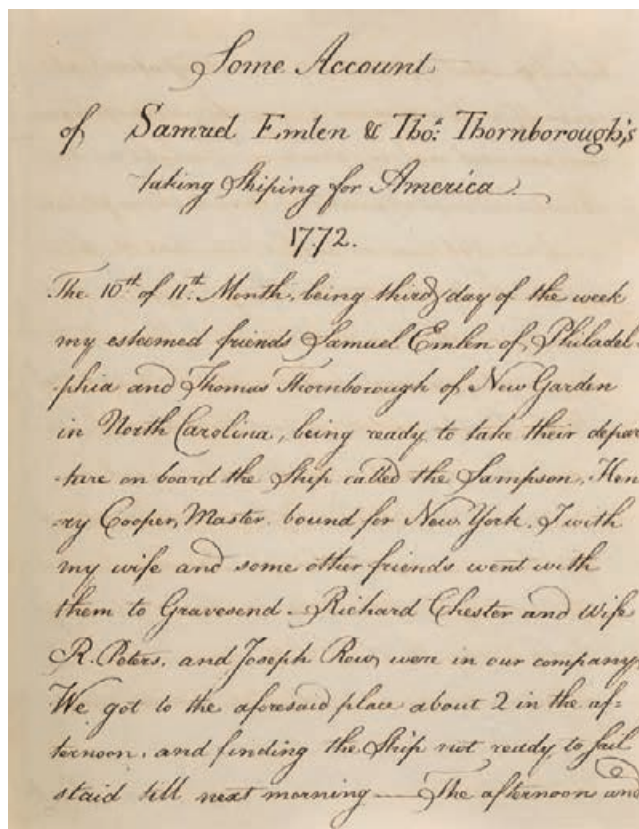 Some Account
of Samuel Emlen & Thos. Thornborough's
taking Shiping for America
1772.
The 10th of 11th Month, being third day of the week
my esteemed friends Samuel Emlen of Philadel-
-phia and Thomas Thornborough of New Garden
in North Carolina, being ready to take their depar
-ture on board the Ship called the Sampson, Hen
-ry Cooper, Master. bound for New York. I with
my wife and some other friends went with
them to Gravesend — Richard Chester and Wife
R. Peters, and Joseph Row, were in our company,
We got to the aforesaid place about 2 in the af=
ternoon, and finding the Ship not ready to sail
staid till next morning — The afternoon and